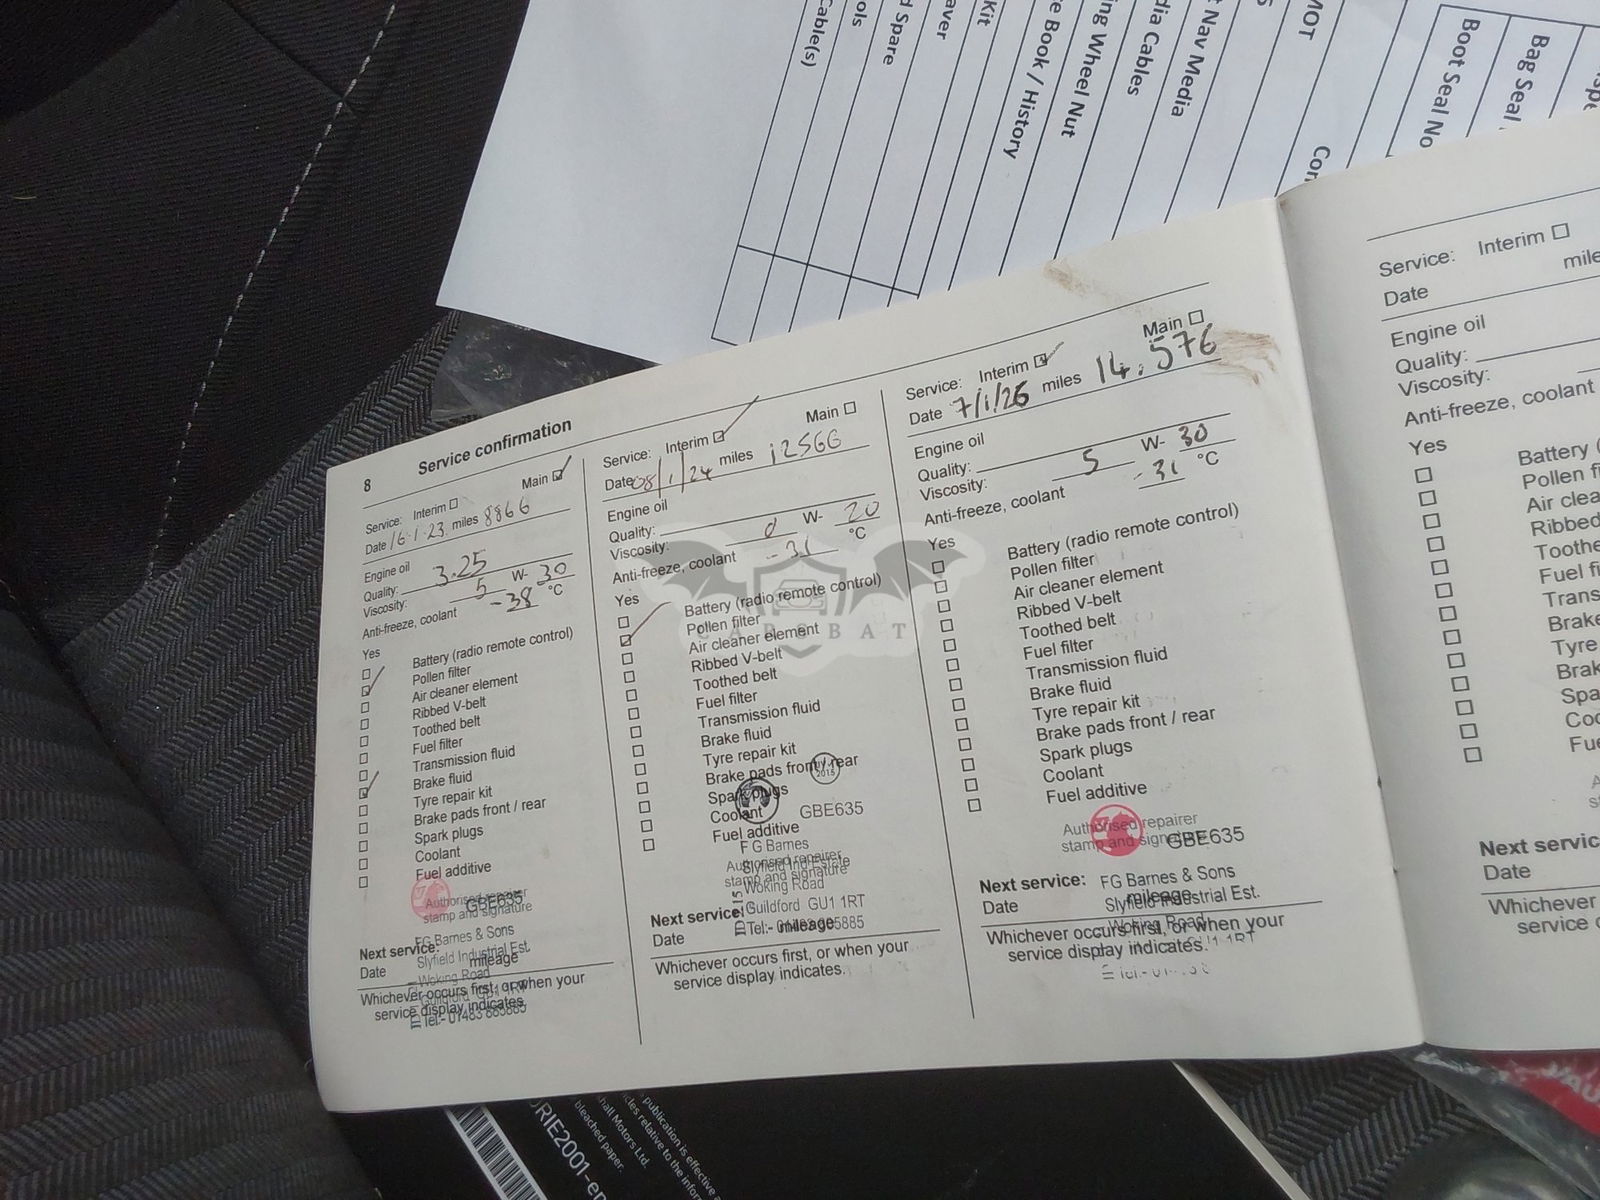 Cable(s)
ols
d Spare
aver
Kit
e Book / History
ing Wheel Nut
dia Cables
t Nav Media
MOT
Con
Boot Seal No
Bag Seal
8 Service confirmation
Service: Interim Main
Date 16.1.23 miles 8866
Engine oil
Quality: 3.25
Viscosity: 5 W- 30
Anti-freeze, coolant -38 °C
Yes
Battery (radio remote control)
Pollen filter
Air cleaner element
Ribbed V-belt
Toothed belt
Fuel filter
Transmission fluid
Brake fluid
Tyre repair kit
Brake pads front / rear
Spark plugs
Coolant
Fuel additive
Authorised repairer
stamp and signature
GBE635
FG Barnes & Sons
Slyfield Industrial Est.
Woking Road
Guildford GU1 1RT
Tel:- 01483 885885
Next service:
Date mileage
Whichever occurs first, or when your
service display indicates.
Service: Interim Main
Date 08/1/24 miles 12566
Engine oil
Quality:
Viscosity: 0 W- 20
Anti-freeze, coolant -31 °C
Yes
Battery (radio remote control)
Pollen filter
Air cleaner element
Ribbed V-belt
Toothed belt
Fuel filter
Transmission fluid
Brake fluid
Tyre repair kit
Brake pads front / rear
Spark plugs
Coolant
Fuel additive
2015
GBE635
F G Barnes
Slyfield Ind Estate
Woking Road
Guildford GU1 1RT
Tel:- 01483 885885
Authorised repairer
stamp and signature
Next service:
Date mileage
Whichever occurs first, or when your
service display indicates.
Service: Interim Main
Date 7/1/26 miles 14,576
Engine oil
Quality:
Viscosity: 5 W- 30
Anti-freeze, coolant -31 °C
Yes
Battery (radio remote control)
Pollen filter
Air cleaner element
Ribbed V-belt
Toothed belt
Fuel filter
Transmission fluid
Brake fluid
Tyre repair kit
Brake pads front / rear
Spark plugs
Coolant
Fuel additive
Authorised repairer
stamp and signature
GBE635
FG Barnes & Sons
Slyfield Industrial Est.
Woking Road
Next service:
Date mileage
Whichever occurs first, or when your
service display indicates.
Service: Interim
Date mile
Engine oil
Quality:
Viscosity:
Anti-freeze, coolant
Yes
Battery (
Pollen fi
Air clea
Ribbed
Toothe
Fuel fi
Trans
Brake
Tyre
Brak
Spa
Coo
Fue
Next servic
Date
Whichever
service d
CAROBAT
ORIE2001-en
publication is effective
cles relative to the infor
hall Motors Ltd.
bleached paper.